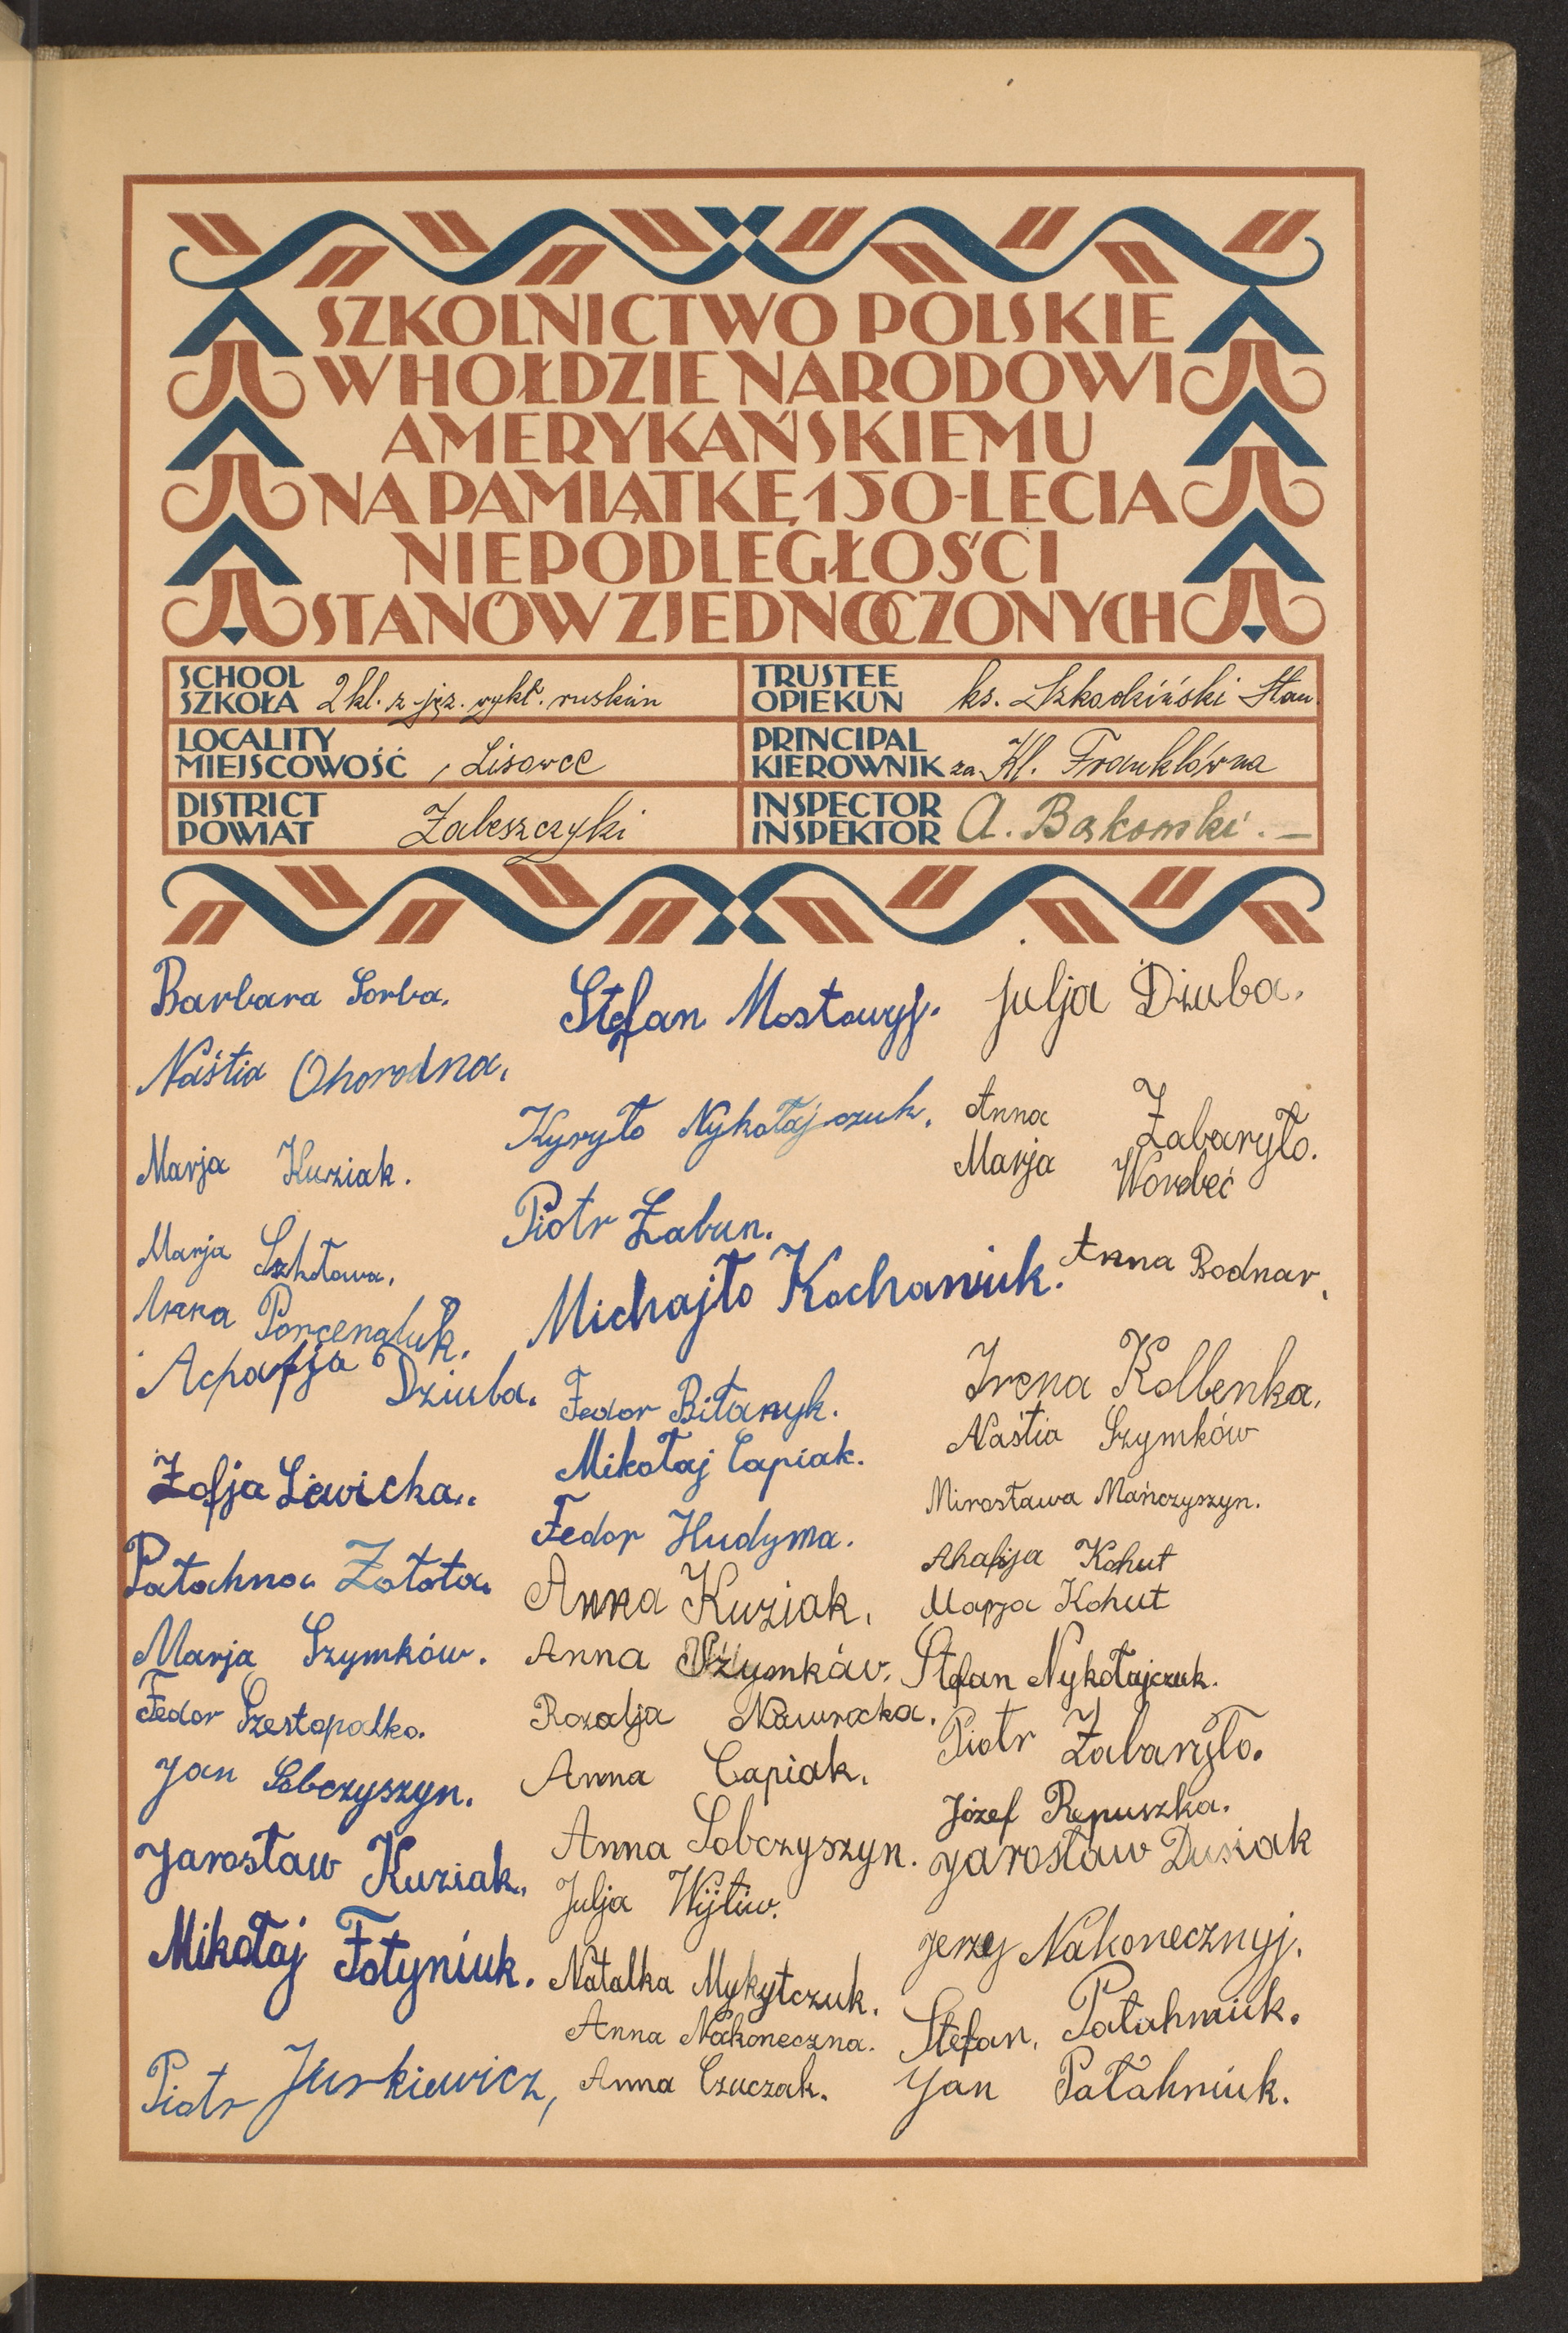 SZKOLNICTWO POLSKIE
W HOŁDZIE NARODOWI
AMERYKAŃSKIEMU
NA PAMIĄTKĘ 150-LECIA
NIEPODLEGŁOŚCI
STANÓW ZJEDNOCZONYCH
SCHOOL
SZKOŁA 2 kl. z jęz. wykł. ruskim
TRUSTEE
OPIEKUN ks. Szkodziński Stan.
LOCALITY
MIEJSCOWOŚĆ Lisowce
PRINCIPAL
KIEROWNIK za Kl. Franklówna
DISTRICT
POWIAT Zaleszczyki
INSPECTOR
INSPEKTOR A. Bąkowski. —
Barbara Sorba.
Naśtia Ohorodna.
Marja Kuziak.
Marja
Anna
Dziuba.
Zofja Lewicka..
Patahna Zołota.
Marja Szymków.
Fedor Szestopalko.
Jan Sobczyszyn.
Jarosław Kuziak.
Mikołaj Fotyniuk.
Piotr Jurkiewicz,
Stefan Mostowyj.
Kyryło Nykołajczuk.
Piotr Łabun.
Michajło Kochaniuk.
Fedor Biłanyk.
Mikołaj Capiak.
Fedor Hudyma.
Anna Kuziak.
Anna Szymków.
Rozalja Nawrocka.
Anna Capiak.
Anna Sobczyszyn.
Julja Wijtiw.
Natalka Mykytczuk.
Anna Nakoneczna.
Anna Czuczak.
Julja Dziuba.
Anna Zabaryło.
Marja Worobeć
Anna Bodnar.
Irena Kolbenka.
Naśtia Szymków
Mirosława Mańczyszyn.
Ahafija Kohut
Marja Kohut
Stefan Nykołajczuk.
Piotr Zabaryło.
Józef Repuszka.
Jarosław Dusiak
Jerzy Nakonecznyj.
Stefan. Patahniuk.
Jan Patahniuk.